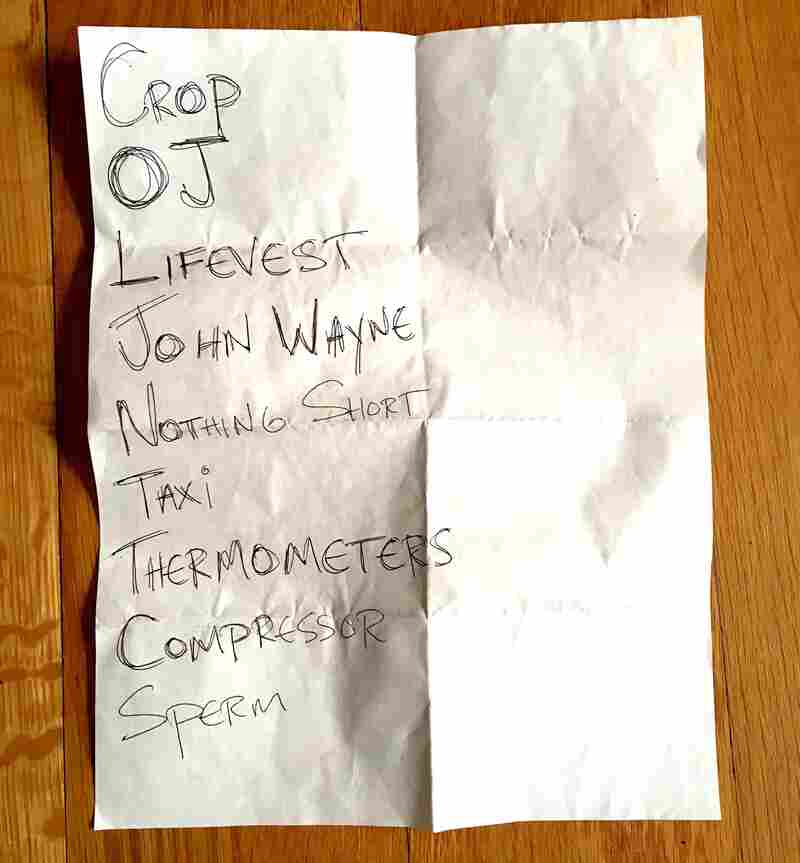 CROP
OJ
LIFEVEST
JOHN WAYNE
NOTHING SHORT
TAXi
THERMOMETERS
COMPRESSOR
SPERM